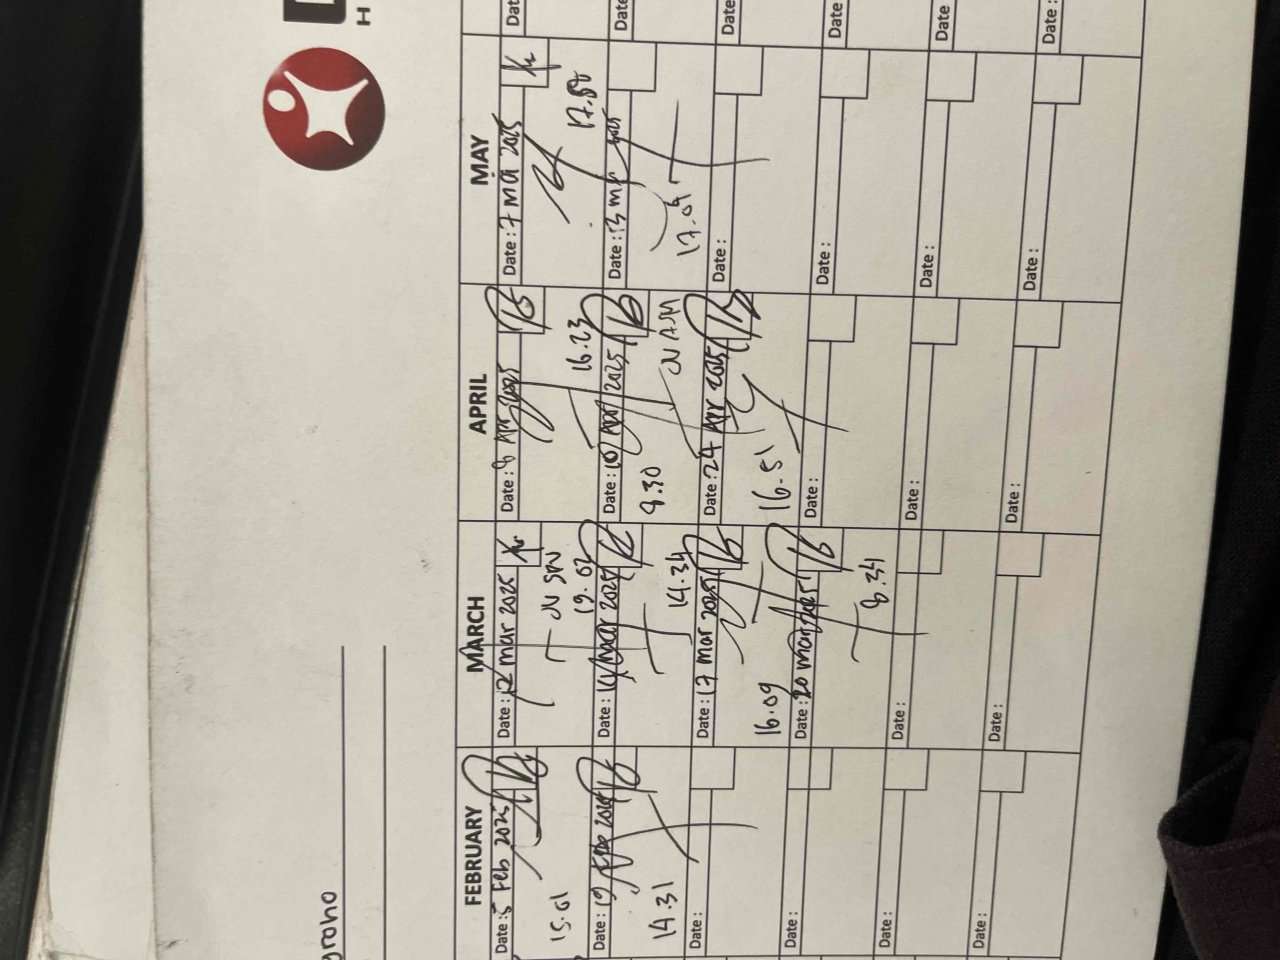 groho
FEBRUARY
Date : 5 Feb 2025
15.01
Date : 19 Feb 2025
14.31
Date :
Date :
Date :
Date :
MARCH
Date : 12 mar 2025
19.02
Date : 14 mar 2025
14.34
Date : 17 mar 2025
16.09
Date : 20 mar 2025
8.34
Date :
Date :
APRIL
Date : 8 Apr 2025
16.23
Date : 10 Apr 2025
Date : 24 Apr 2025
16.51
Date :
Date :
Date :
MAY
Date : 7 Mei 2025
Date : 13 2025
17.09
Date :
Date :
Date :
Date :
Dat
Date
Date
Date
Date
Date :
H